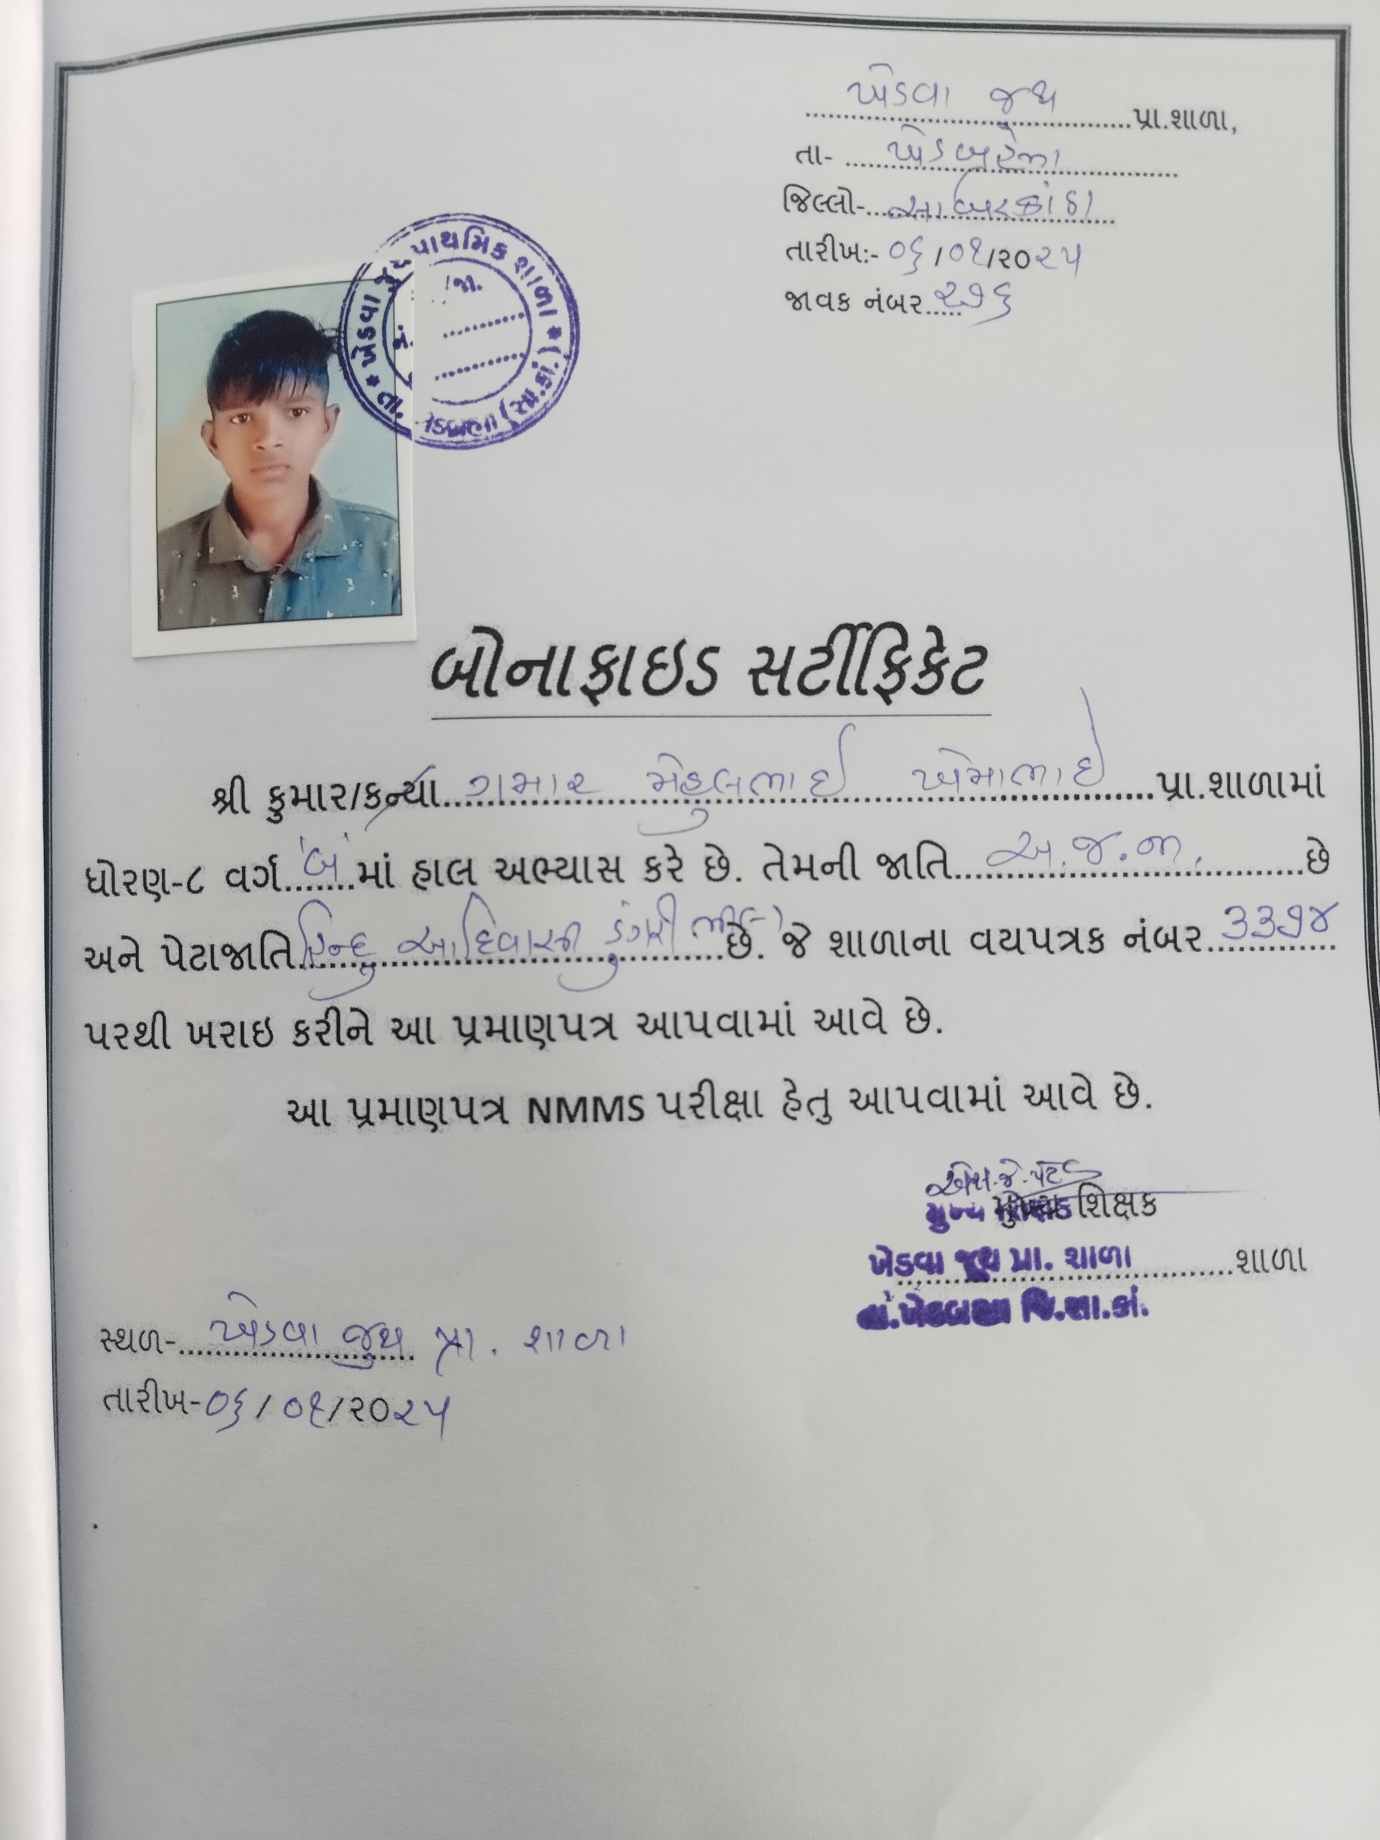 ખેડવા જુથ પ્રા.શાળા,
તા- ખેડબ્રહ્મા
જિલ્લો- સાબરકાંઠા
તારીખ:- ૦૬/૦૧/૨૦૨૫
જાવક નંબર ૨૭૬
* ખેડવા જુથ પ્રાથમિક શાળા * તા. ખેડબ્રહ્મા (સા.કાં.)
જા.
નં.
બોનાફાઇડ સર્ટીફિકેટ
શ્રી કુમાર/કન્યા ગમાર મેહુલભાઈ ખેમાભાઈ પ્રા.શાળામાં
ધોરણ-૮ વર્ગ 'બ' માં હાલ અભ્યાસ કરે છે. તેમની જાતિ અ.જ.જા. છે
અને પેટાજાતિ હિન્દુ આદિવાસી ડુંગરી ભીલ છે. જે શાળાના વયપત્રક નંબર ૩૩૭૪
પરથી ખરાઇ કરીને આ પ્રમાણપત્ર આપવામાં આવે છે.
આ પ્રમાણપત્ર NMMS પરીક્ષા હેતુ આપવામાં આવે છે.
એસ.જે.પટેલ
મુખ્ય શિક્ષક
ખેડવા જુથ પ્રા. શાળા શાળા
તા.ખેડબ્રહ્મા જિ.સા.કાં.
સ્થળ- ખેડવા જુથ પ્રા. શાળા
તારીખ-૦૬/૦૧/૨૦૨૫